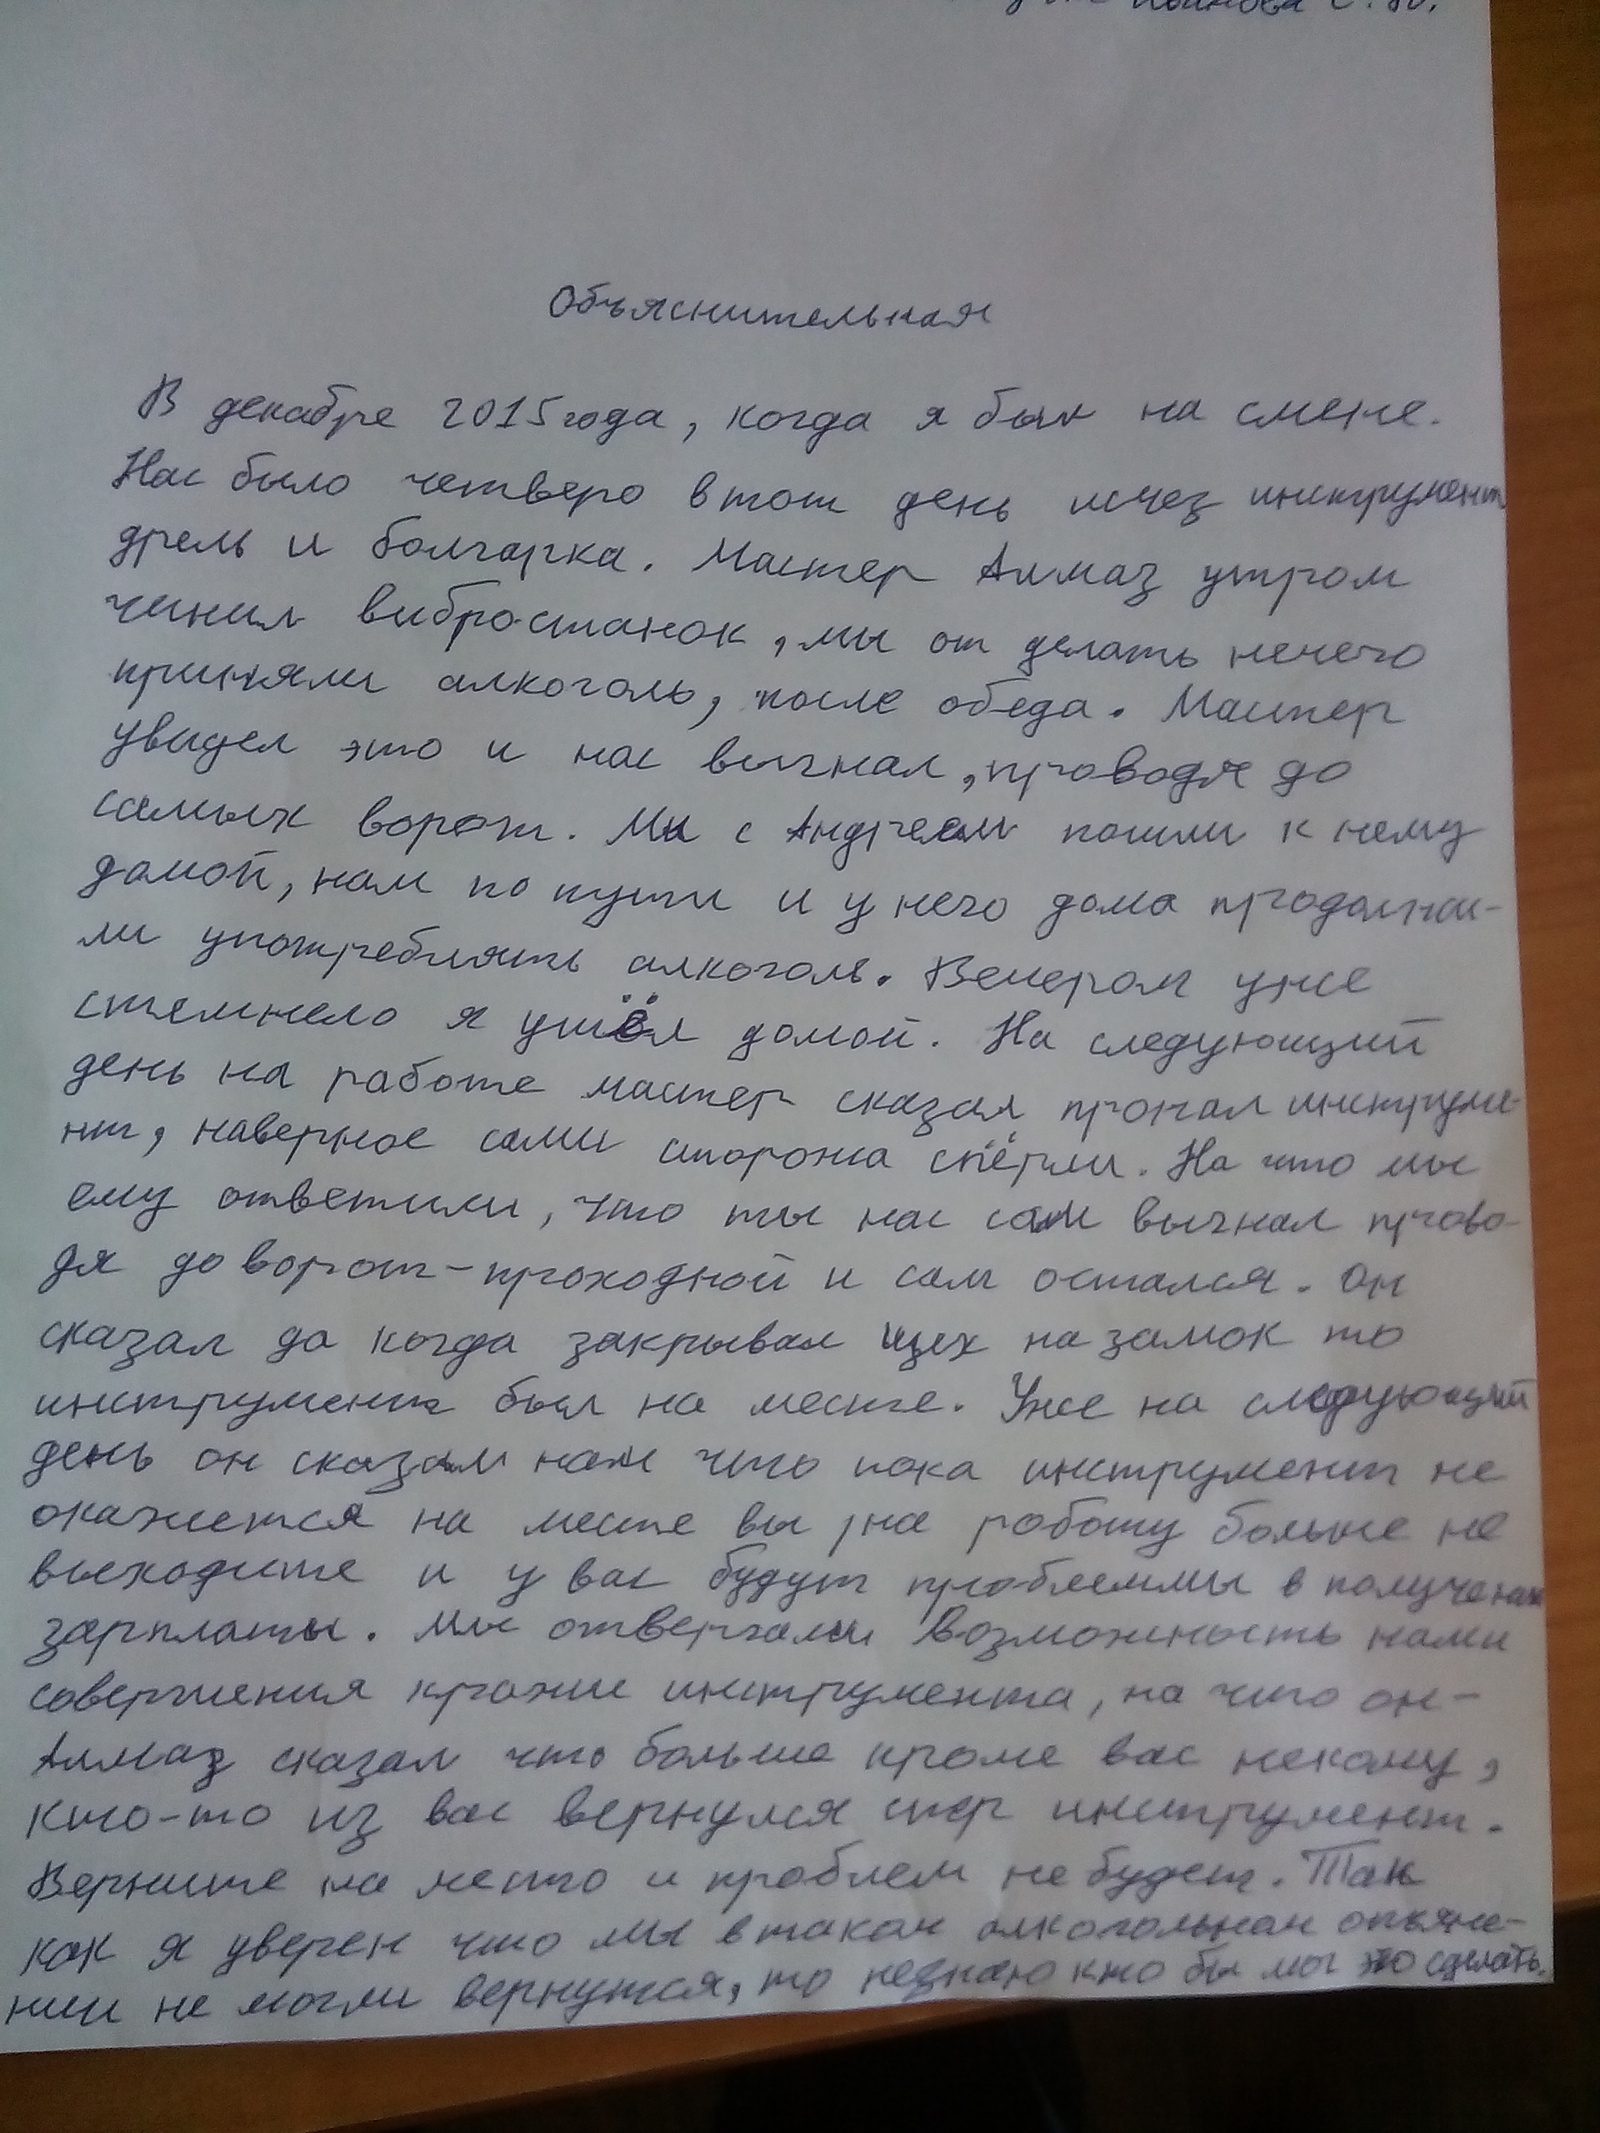 Иванова С. Ю.
Объяснительная
В декабре 2015 года, когда я был на смене.
Нас было четверо в тот день исчез инструмент
дрель и болгарка. Мастер Алмаз утром
чинил вибростанок, мы от делать нечего
приняли алкоголь, после обеда. Мастер
увидел это и нас выгнал, проводя до
самых ворот. Мы с Андреем пошли к нему
домой, нам по пути и у него дома продолжа-
ли употреблять алкоголь. Вечером уже
стемнело я ушёл домой. На следующий
день на работе мастер сказал пропал инструме-
нт, наверное сами сторожа спёрли. На что мы
ему ответили, что ты нас сам выгнал прово-
дя до ворот-проходной и сам остался. Он
сказал да когда закрывал цех на замок то
инструмент был на месте. Уже на следующий
день он сказал нам что пока инструмент не
окажется на месте вы на работу больше не
выходите и у вас будут проблеммы в получении
зарплаты. Мы отвергали возможность нами
совершения кражи инструмента, на что он-
Алмаз сказал что больше кроме вас некому,
кто-то из вас вернулся спер инструмент.
Верните на место и проблем не будет. Так
как я уверен что мы в таком алкогольном опьяне-
нии не могли вернутся, то незнаю кто бы мог это сделать.